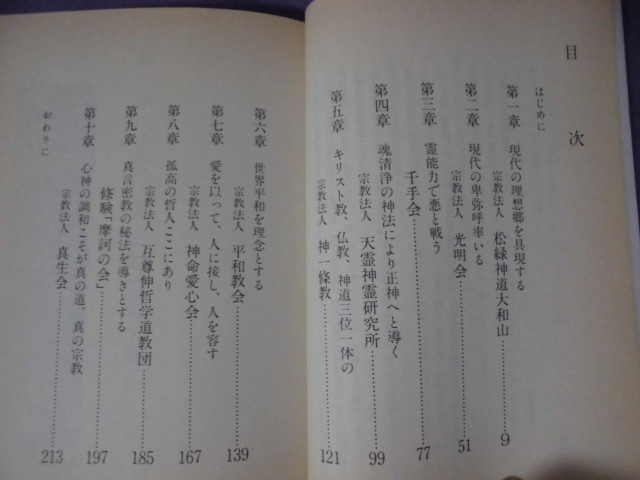 目次
はじめに
第一章 現代の理想郷を具現する
宗教法人 松緑神道大和山……………9
第二章 現代の卑弥呼率いる
宗教法人 光明会……………51
第三章 霊能力で悪と戦う
千手会……………77
第四章 魂清浄の神法により正神へと導く
宗教法人 天霊神霊研究所……………99
第五章 キリスト教、仏教、神道三位一体の
宗教法人 神一條教……………121
第六章 世界平和を理念とする
宗教法人 平和教会……………139
第七章 愛を以って、人に接し、人を容す
宗教法人 神命愛心会……………167
第八章 孤高の哲人ここにあり
宗教法人 互尊伸哲学道教団……………185
第九章 真言密教の秘法を導きとする
修験「摩訶の会」……………197
第十章 心神の調和こそが真の道、真の宗教
宗教法人 真生会……………213
おわりに